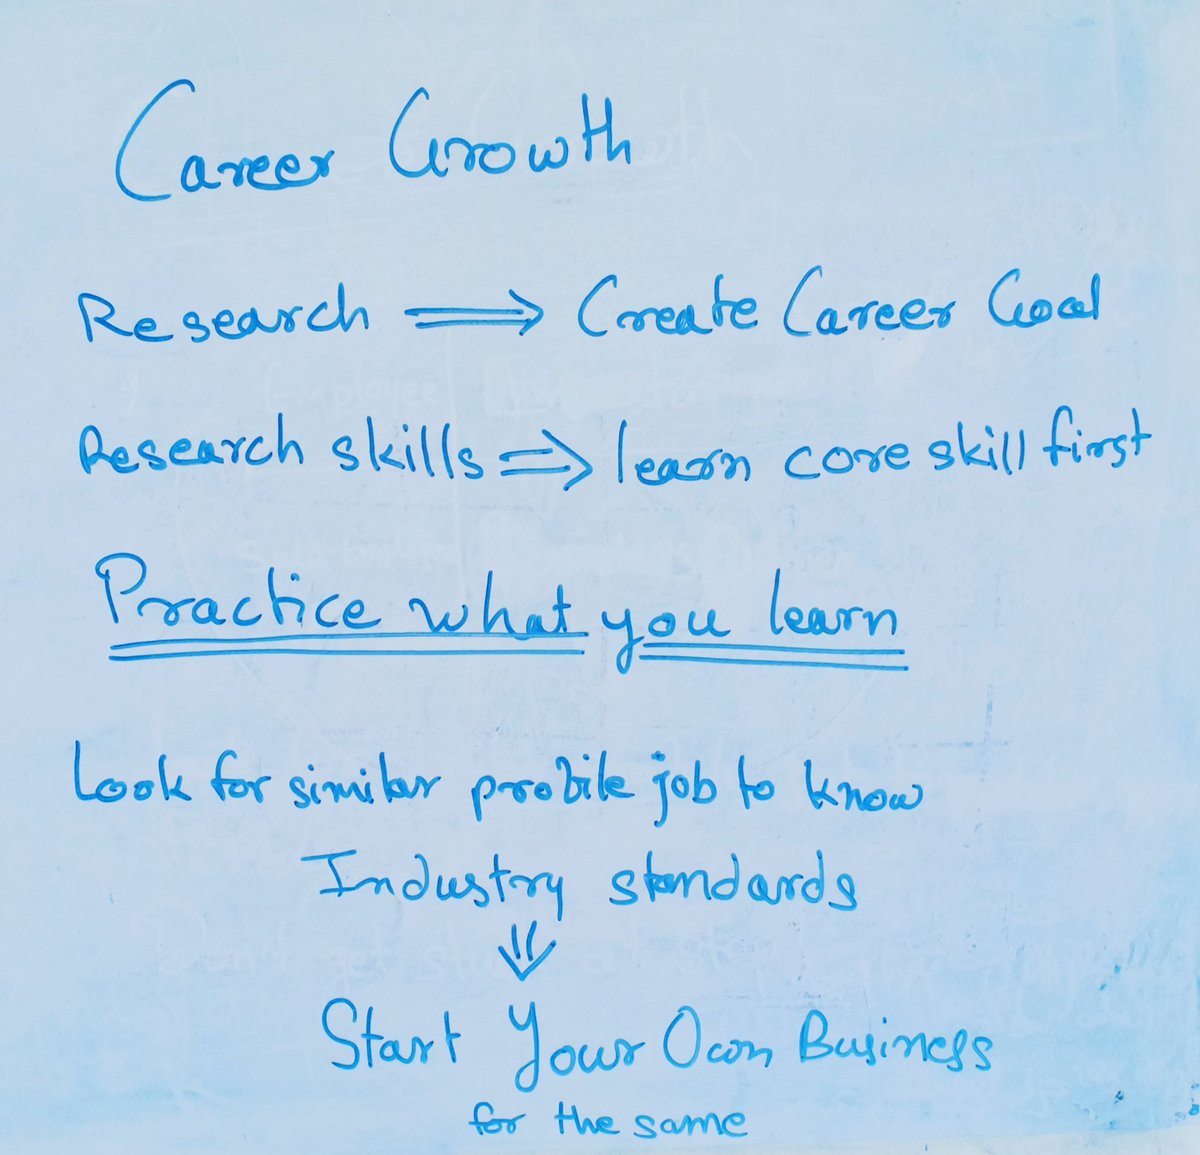 Career Growth
Research ⇒ Create Career Goal
Research skills ⇒ learn core skill first
Practice what you learn
Look for similar profile job to know
Industry standards
⇓
Start Your Own Business
for the same